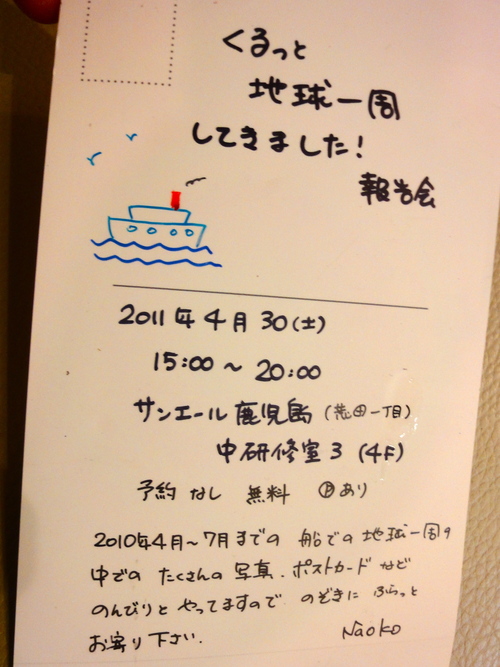 くるっと
地球一周
してきました!
報告会
2011年4月30(土)
15:00～20:00
サンエール鹿児島(荒田一丁目)
中研修室3 (4F)
予約なし 無料 Ⓟあり
2010年4月～7月までの 船での地球一周の
中での たくさんの写真、ポストカードなど
のんびりと やってますので のぞきに ふらっと
お寄り下さい.
Naoko